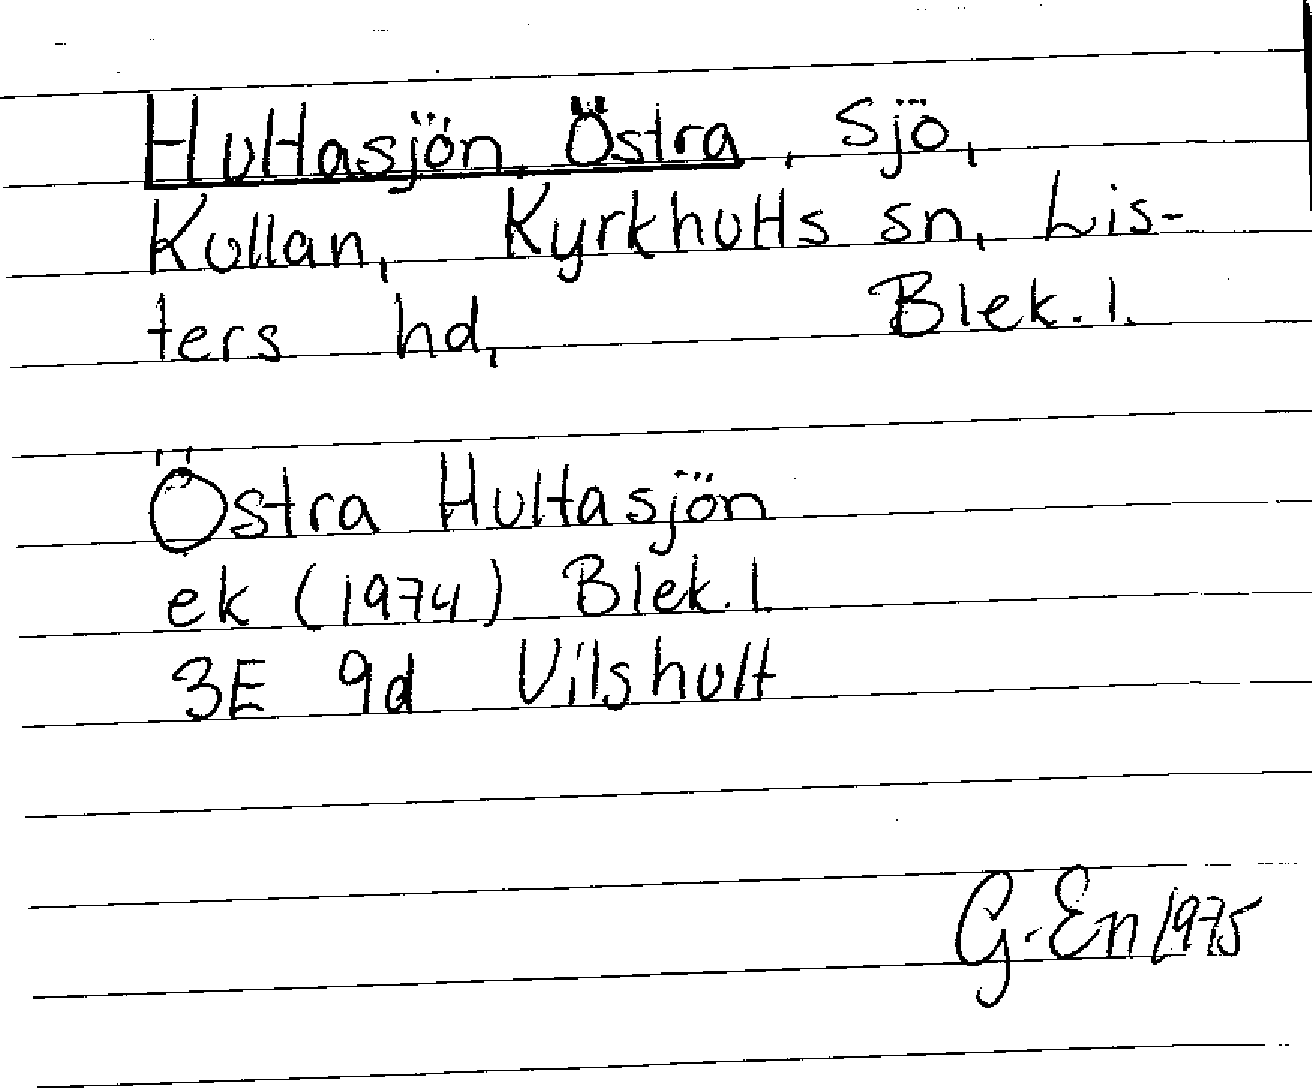 Hultasjön, Östra, sjö,
Kullan, Kyrkhults sn, Lis-
ters hd, Blek. l.
Östra Hultasjön
ek (1974) Blek. l.
3E 9d Vilshult
G. En 1975